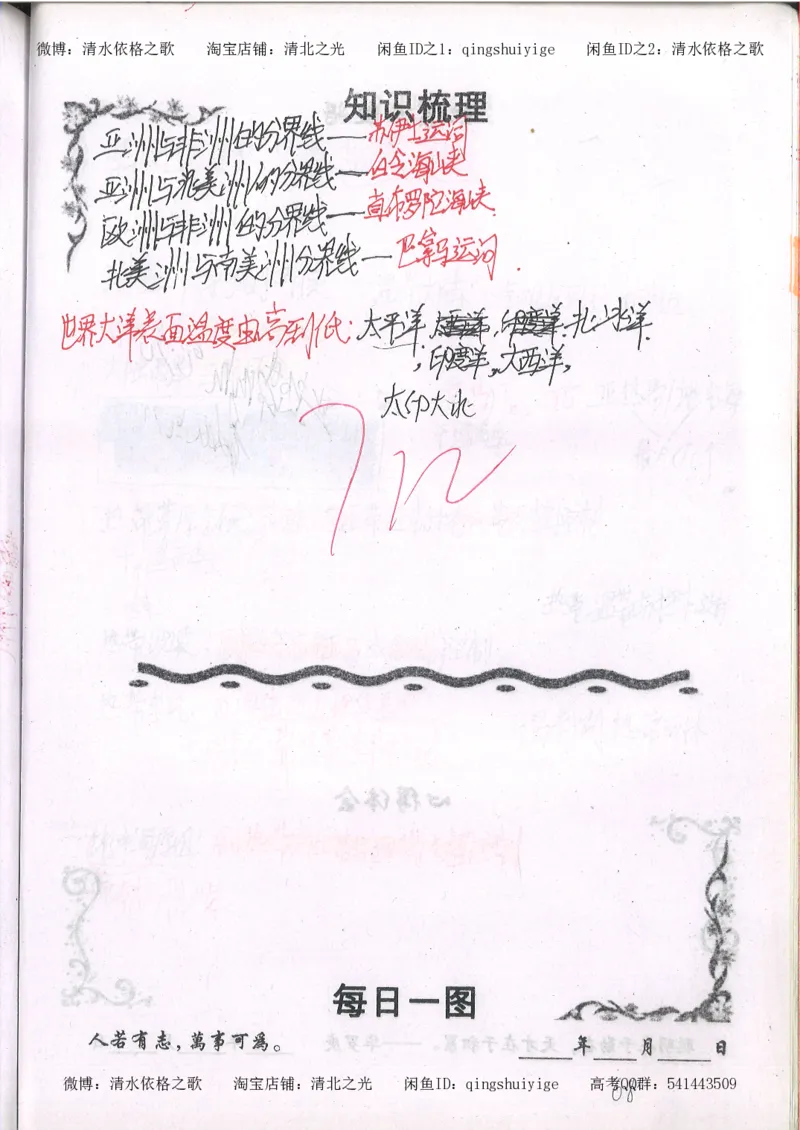 微博：清水依格之歌 淘宝店铺：清北之光 闲鱼ID之1：qingshuiyige 闲鱼ID之2：清水依格之歌
知识梳理
亚洲与非洲的分界线——苏伊士运河
亚洲与北美洲的分界线——白令海峡
欧洲与非洲的分界线——直布罗陀海峡
北美洲与南美洲分界线——巴拿马运河
世界大洋表面温度由高到低：太平洋，大西洋，印度洋，北冰洋
，印度洋，大西洋，
太印大北
每日一图
人若有志，萬事可為。
年 月 日
微博：清水依格之歌 淘宝店铺：清北之光 闲鱼ID：qingshuiyige 高考QQ群：541443509